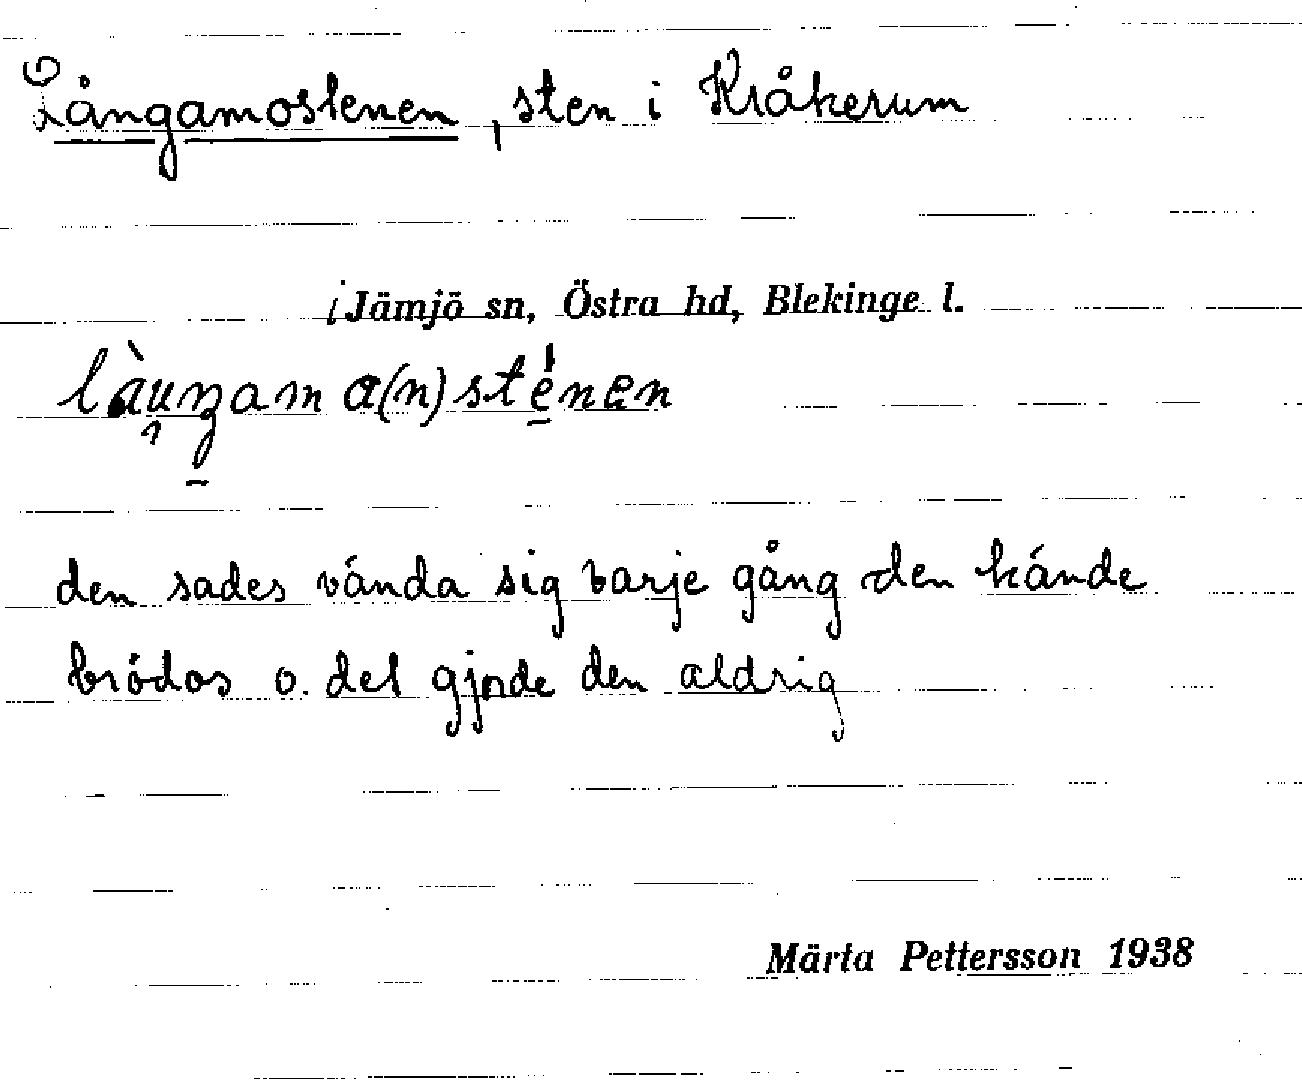 Långamostenen, sten i Kråkerum
i Jämjö sn, Östra hd, Blekinge l.
làuŋam a(n) sténen
den sades vända sig varje gång den kände
brödos o. det gjorde den aldrig
Märta Pettersson 1938